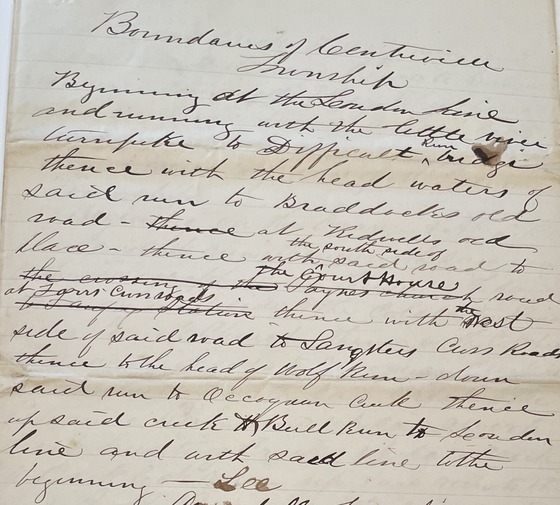 Boundaries of Centreville
Township
Beginning at the Loudon line
and running with the little river
turnpike to Difficult Run bridge
thence with the head waters of
said run to Braddocks old
road - thence at Kidwells old
the south side of
place - thence with said road to
the Court House
the crossing of the Paynes church road
at Farrs Cross roads
to Station thence with the West
side of said road to Sangsters Cross Roads
thence to the head of Wolf Run - down
said run to Occoquan Creek thence
up said creek & Bull Run to Loudon
line and with said line to the
beginning — Lee